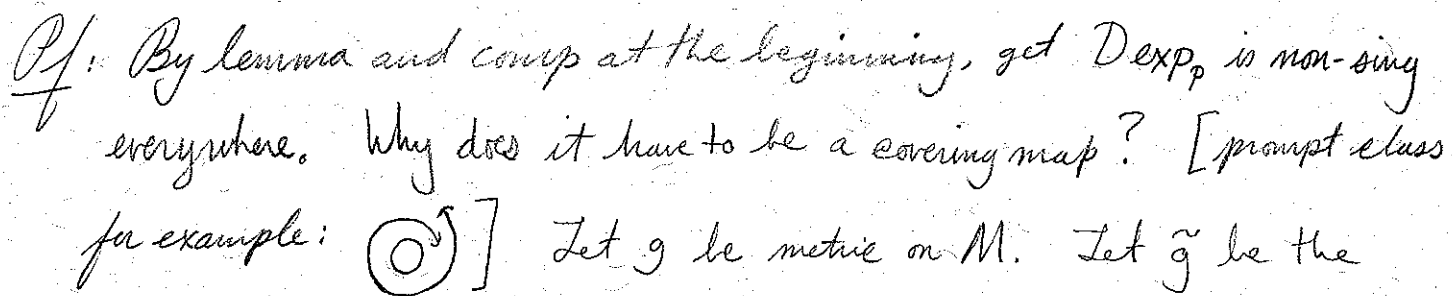 Pf: By lemma and comp at the beginning, get Dexpₚ is non-sing
everywhere. Why does it have to be a covering map? [prompt class
for example: ] Let g be metric on M. Let g̃ be the